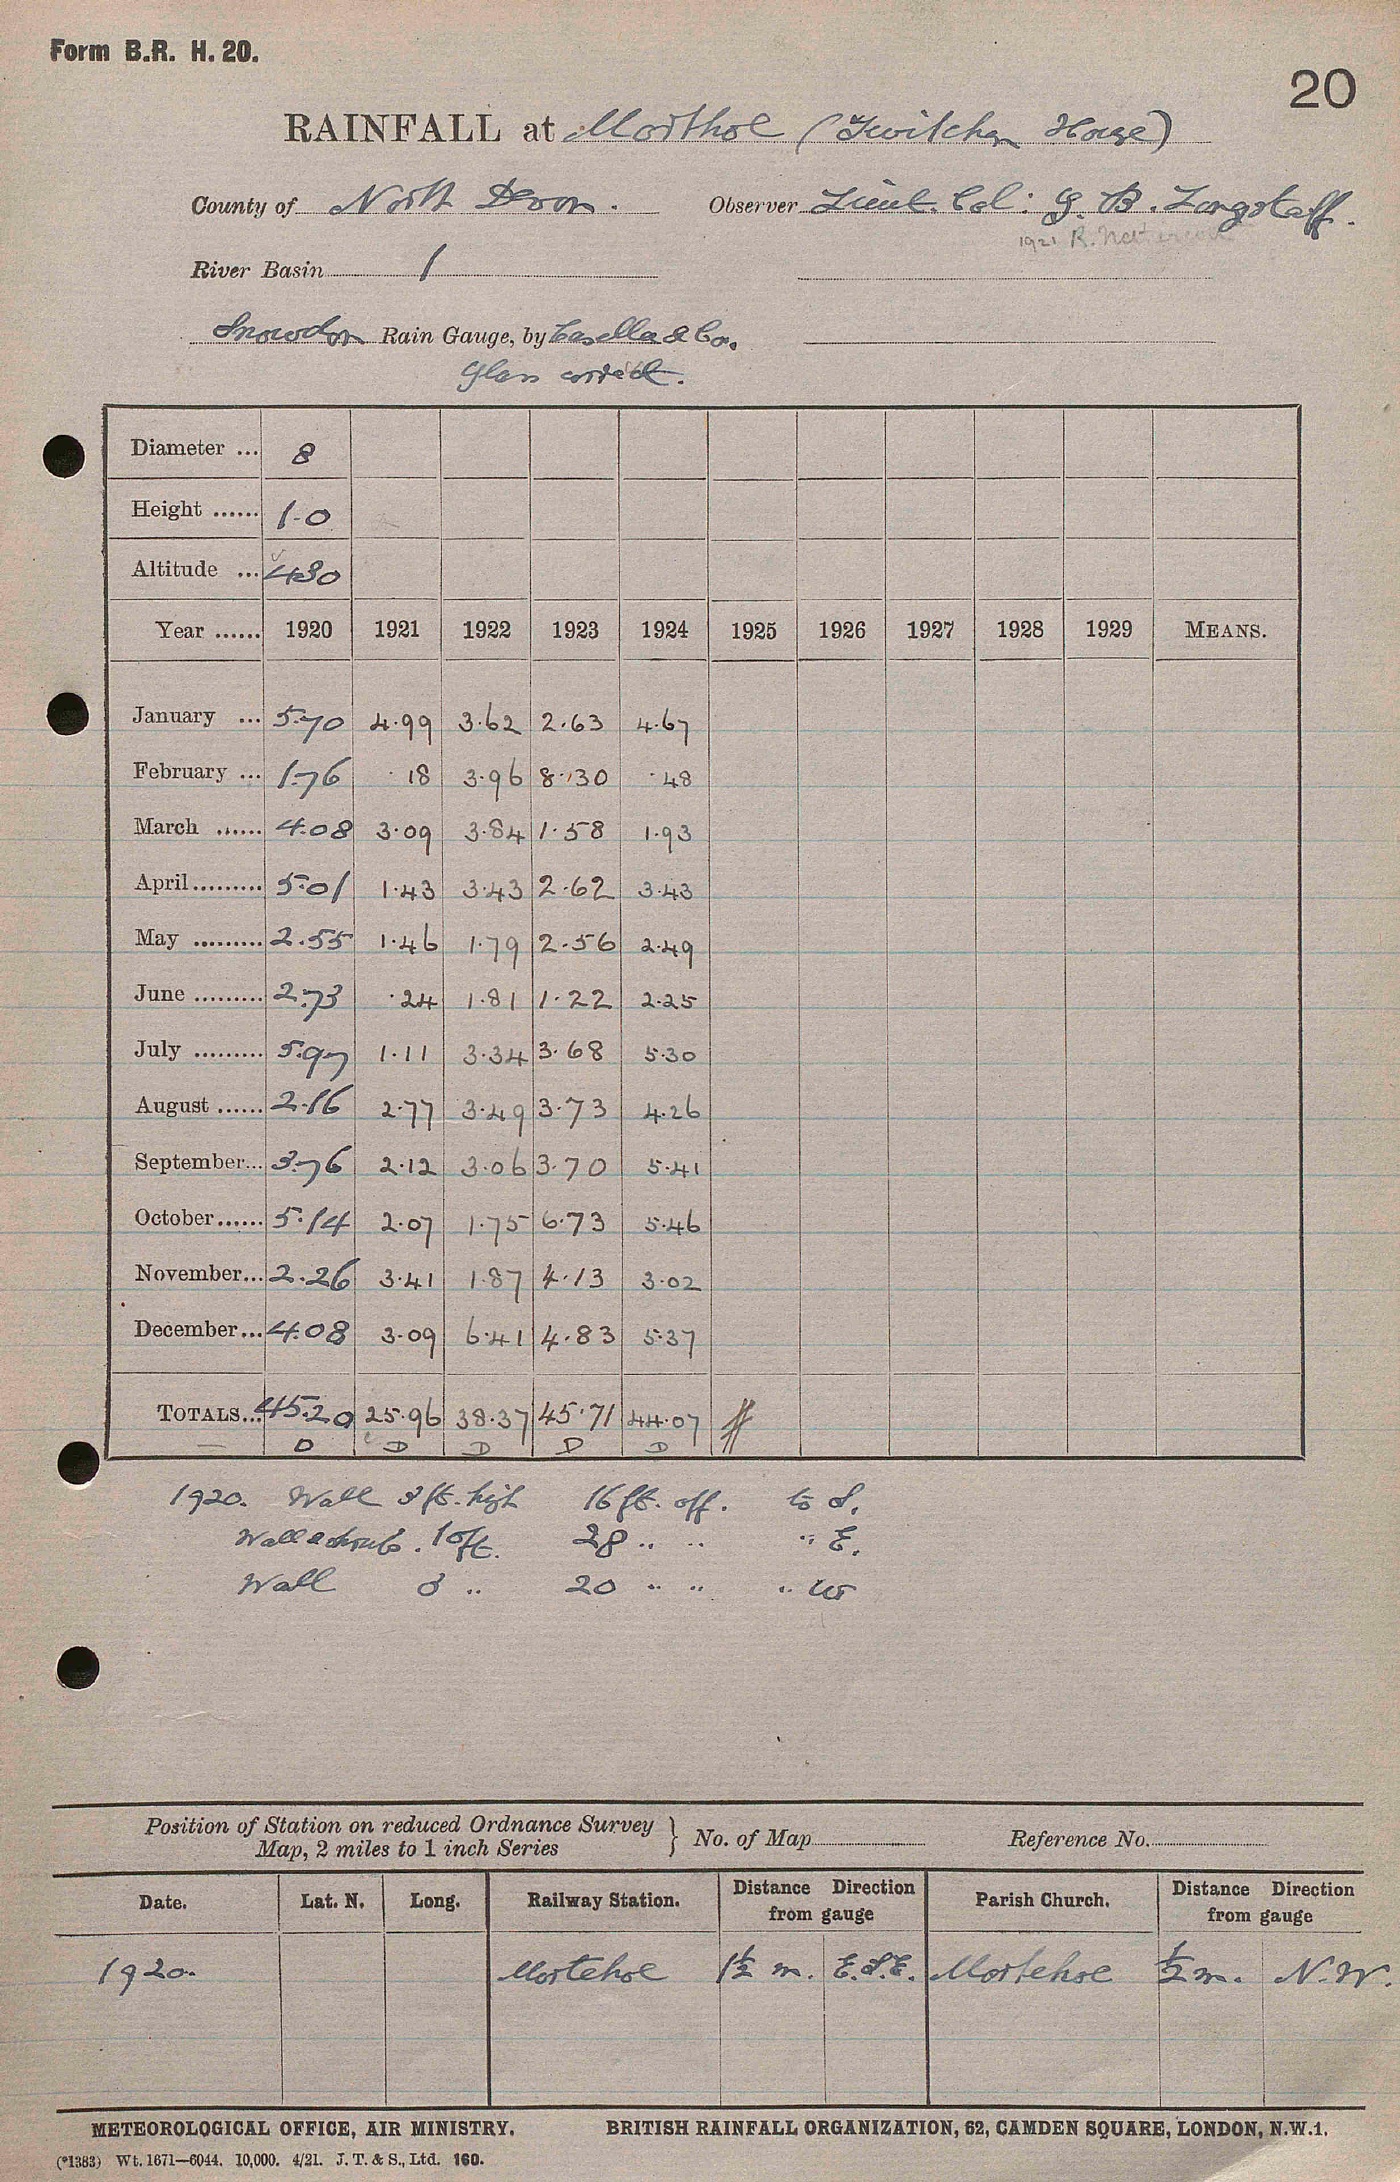 Form B.R. H. 20.
20
RAINFALL at Morthoe (Twitchen House)
County of North Devon. Observer Lieut. Col: G. B. Longstaff.
1921 R.
River Basin 1
Snowdon Rain Gauge, by Casella & Co.
Glass correct.
Diameter ... 8
Height ...... 1-0
Altitude ... 430
Year ...... 1920 1921 1922 1923 1924 1925 1926 1927 1928 1929 MEANS.
January ... 5.70 4.99 3.62 2.63 4.67
February ... 1.76 .18 3.96 8.30 .48
March ...... 4.08 3.09 3.84 1.58 1.93
April......... 5.01 1.43 3.43 2.62 3.43
May ......... 2.55 1.46 1.79 2.56 2.49
June ......... 2.73 .24 1.81 1.22 2.25
July ......... 5.97 1.11 3.34 3.68 5.30
August ...... 2.16 2.77 3.49 3.73 4.26
September... 3.76 2.12 3.06 3.70 5.41
October...... 5.14 2.07 1.75 6.73 5.46
November... 2.26 3.41 1.87 4.13 3.02
December... 4.08 3.09 6.41 4.83 5.37
TOTALS... 45.20 25.96 38.37 45.71 44.07
D D D D D
1920. Wall 3 ft. high 16 ft. off. to S.
Wall & shrubs. 10ft. 28 " " " E.
Wall 3 " 20 " " " W
Position of Station on reduced Ordnance Survey
Map, 2 miles to 1 inch Series } No. of Map Reference No.
Date. Lat. N. Long. Railway Station. Distance Direction from gauge Parish Church. Distance Direction from gauge
1920. Mortehoe 1½ m. E.S.E. Mortehoe ½ m. N.W.
METEOROLOGICAL OFFICE, AIR MINISTRY. BRITISH RAINFALL ORGANIZATION, 62, CAMDEN SQUARE, LONDON, N.W.1.
(*1383) Wt. 1671—6044. 10,000. 4/21. J. T. & S., Ltd. 160.